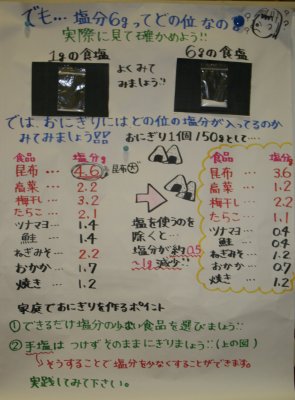 でも… 塩分6gってどの位なの
実際に見て確かめよう!!
1gの食塩
6gの食塩
よくみて
みましょう!!
では、おにぎりにはどの位の塩分が入ってるのか
みてみましょう
おにぎり1個150gとして…
食品 塩分g
昆布 … 4.6 昆布大
高菜 … 2.2
梅干し … 3.2
たらこ… 2.1
ツナマヨ … 1.4
鮭 … 1.4
ねぎみそ … 2.2
おかか … 1.7
焼き … 1.2
塩を使うのを
除くと…
塩分が約0.5
~1g減少!!
食品 塩分g
昆布 … 3.6
高菜 … 1.2
梅干し… 2.2
たらこ… 1.1
ツナマヨ 0.4
鮭 … 0.4
ねぎみそ… 1.2
おかか … 0.7
焼き … 1.2
家庭でおにぎりを作るポイント
①できるだけ塩分の少ない食品を選びましょう
②手塩はつけずそのままにぎりましょう (上の図)
そうすることで塩分を少なくすることができます。
実践してみて下さい。